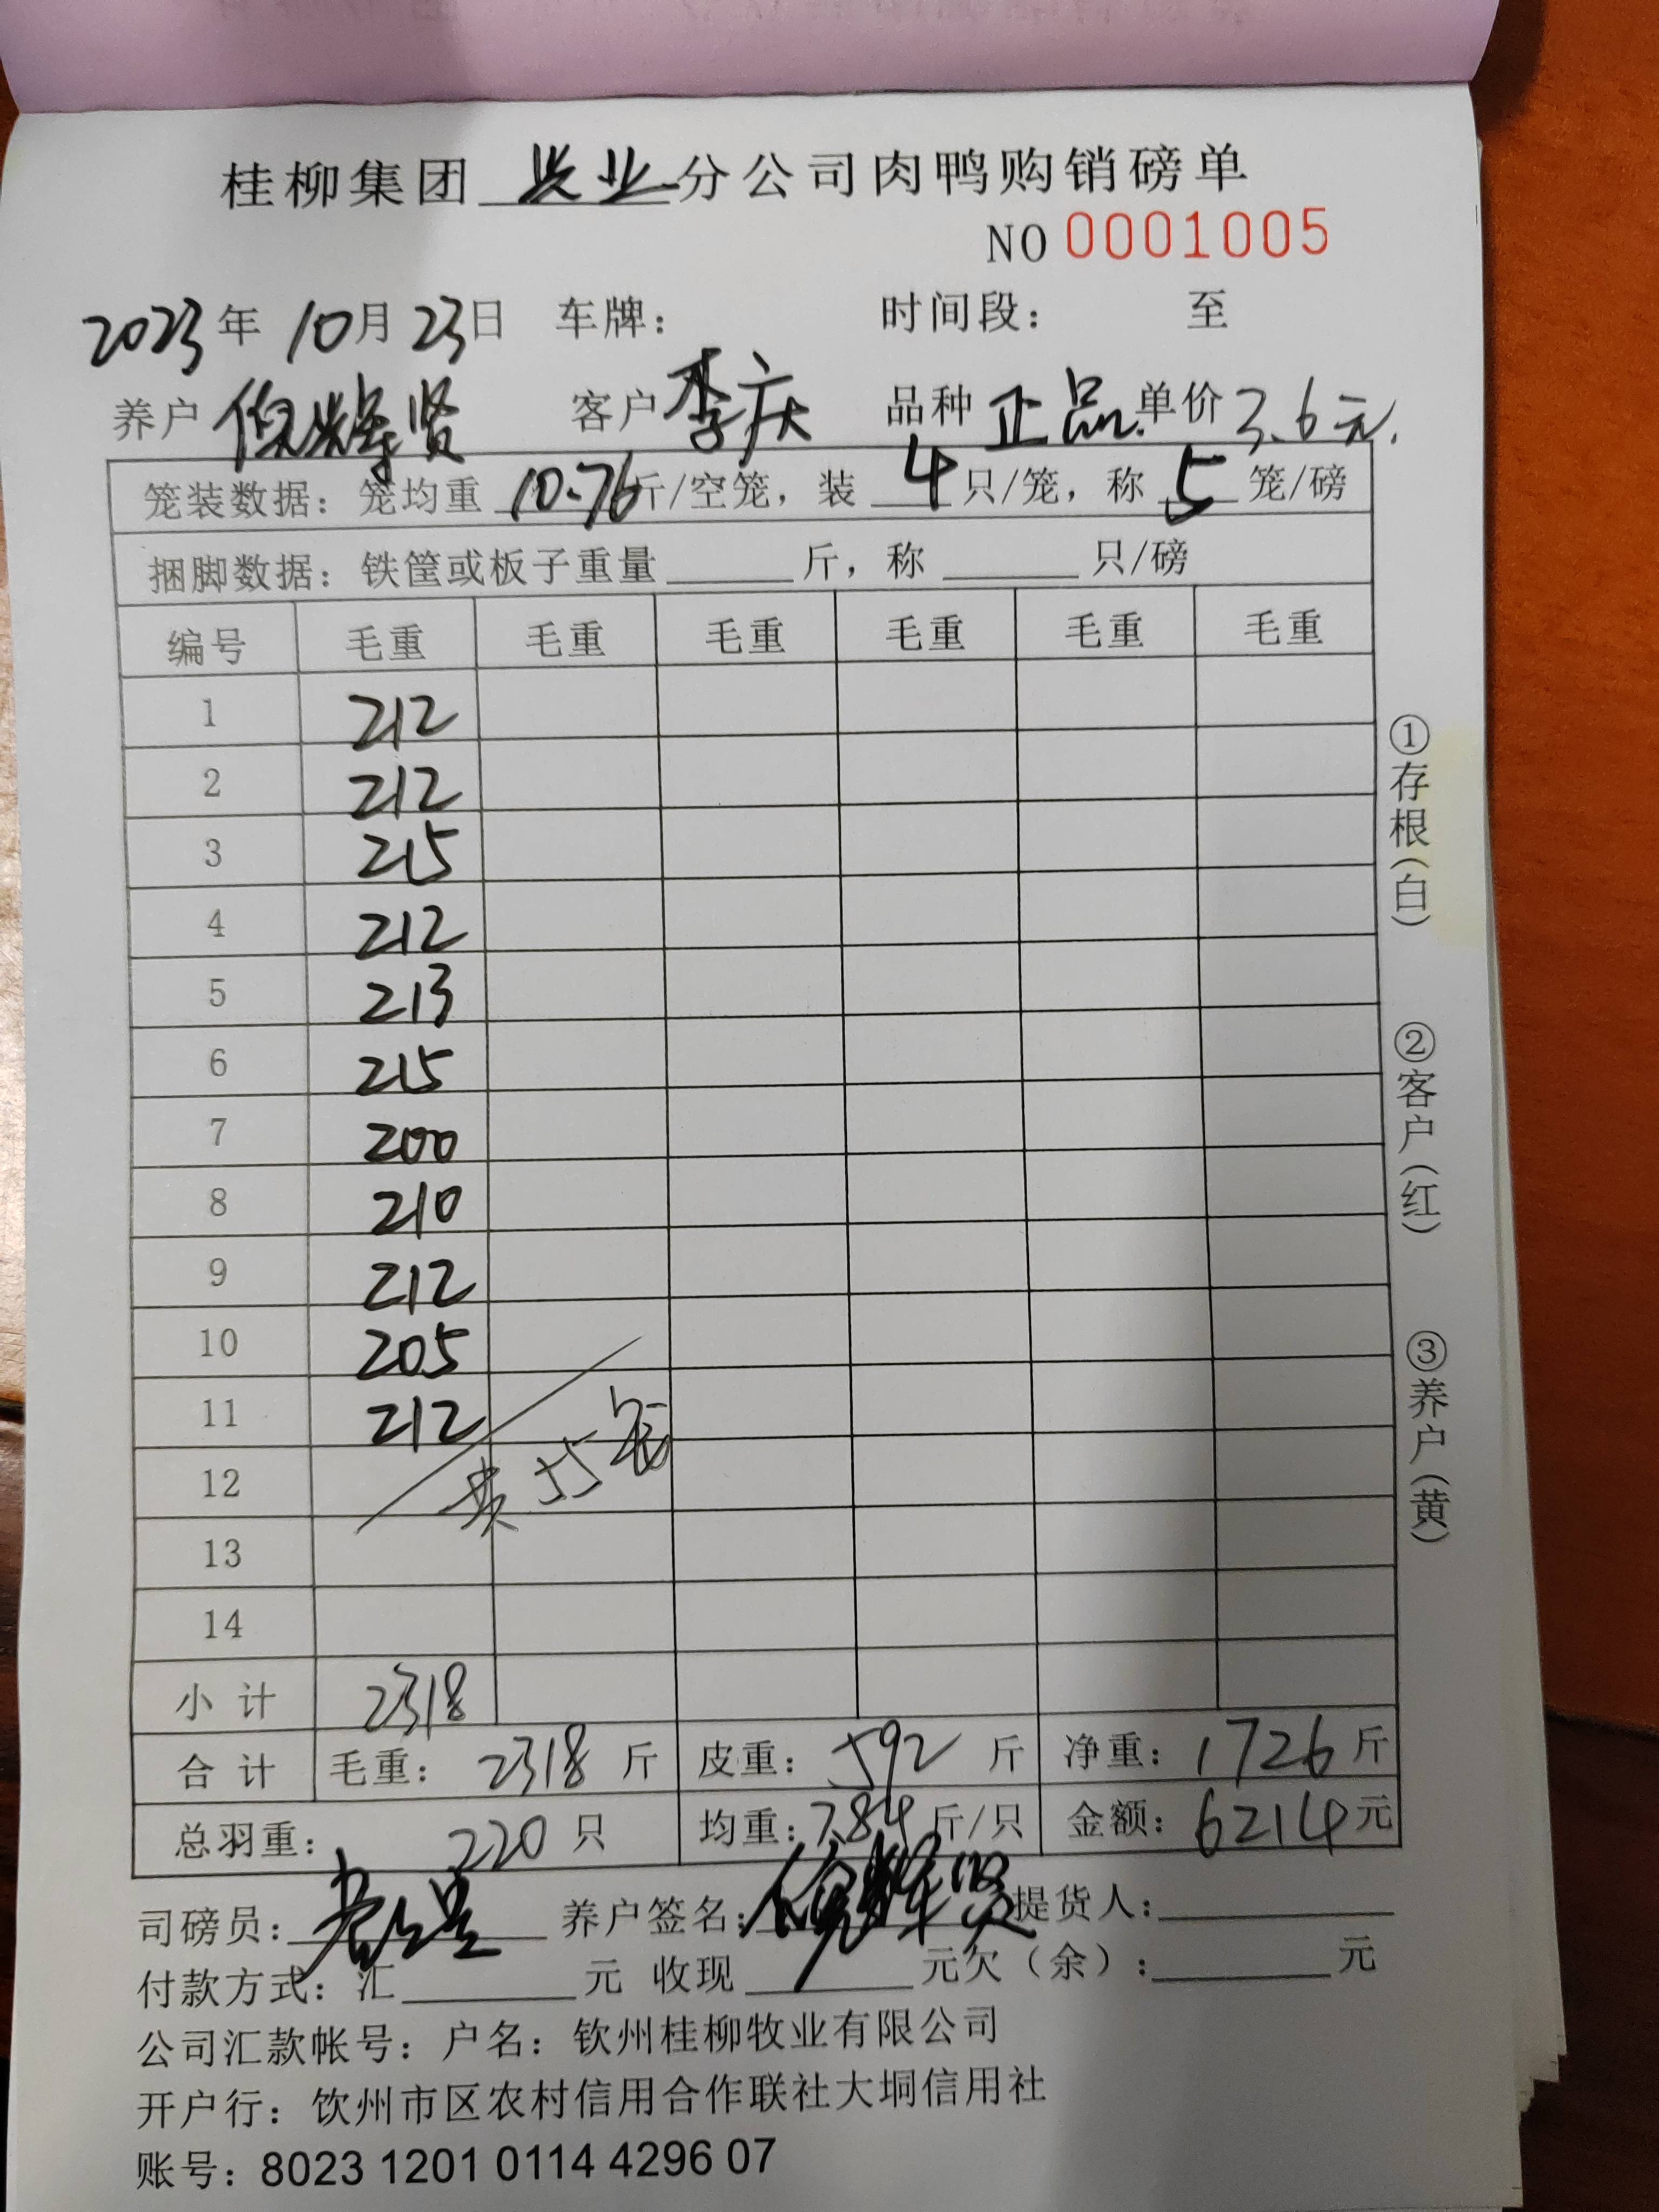 桂柳集团 兴业 分公司肉鸭购销磅单
NO 0001005
2023 年 10 月 23 日 车牌： 时间段： 至
养户 倪辉贤 客户 李庆 品种 正品. 单价 3.6元.
笼装数据：笼均重 10.76 斤/空笼，装 4 只/笼，称 5 笼/磅
捆脚数据：铁筐或板子重量 斤，称 只/磅
编号 毛重 毛重 毛重 毛重 毛重 毛重
1 212
2 212
3 215
4 212
5 213
6 215
7 200
8 210
9 212
10 205
11 212
12 共55笼
13
14
小计 2318
合计 毛重： 2318 斤 皮重： 592 斤 净重： 1726 斤
总羽重： 220 只 均重： 7.84 斤/只 金额： 6214 元
司磅员： 养户签名： 倪辉贤 提货人：
付款方式：汇 元 收现 元欠（余）： 元
公司汇款帐号：户名：钦州桂柳牧业有限公司
开户行：饮州市区农村信用合作联社大垌信用社
账号：8023 1201 0114 4296 07
①存根（白）
②客户（红）
③养户（黄）